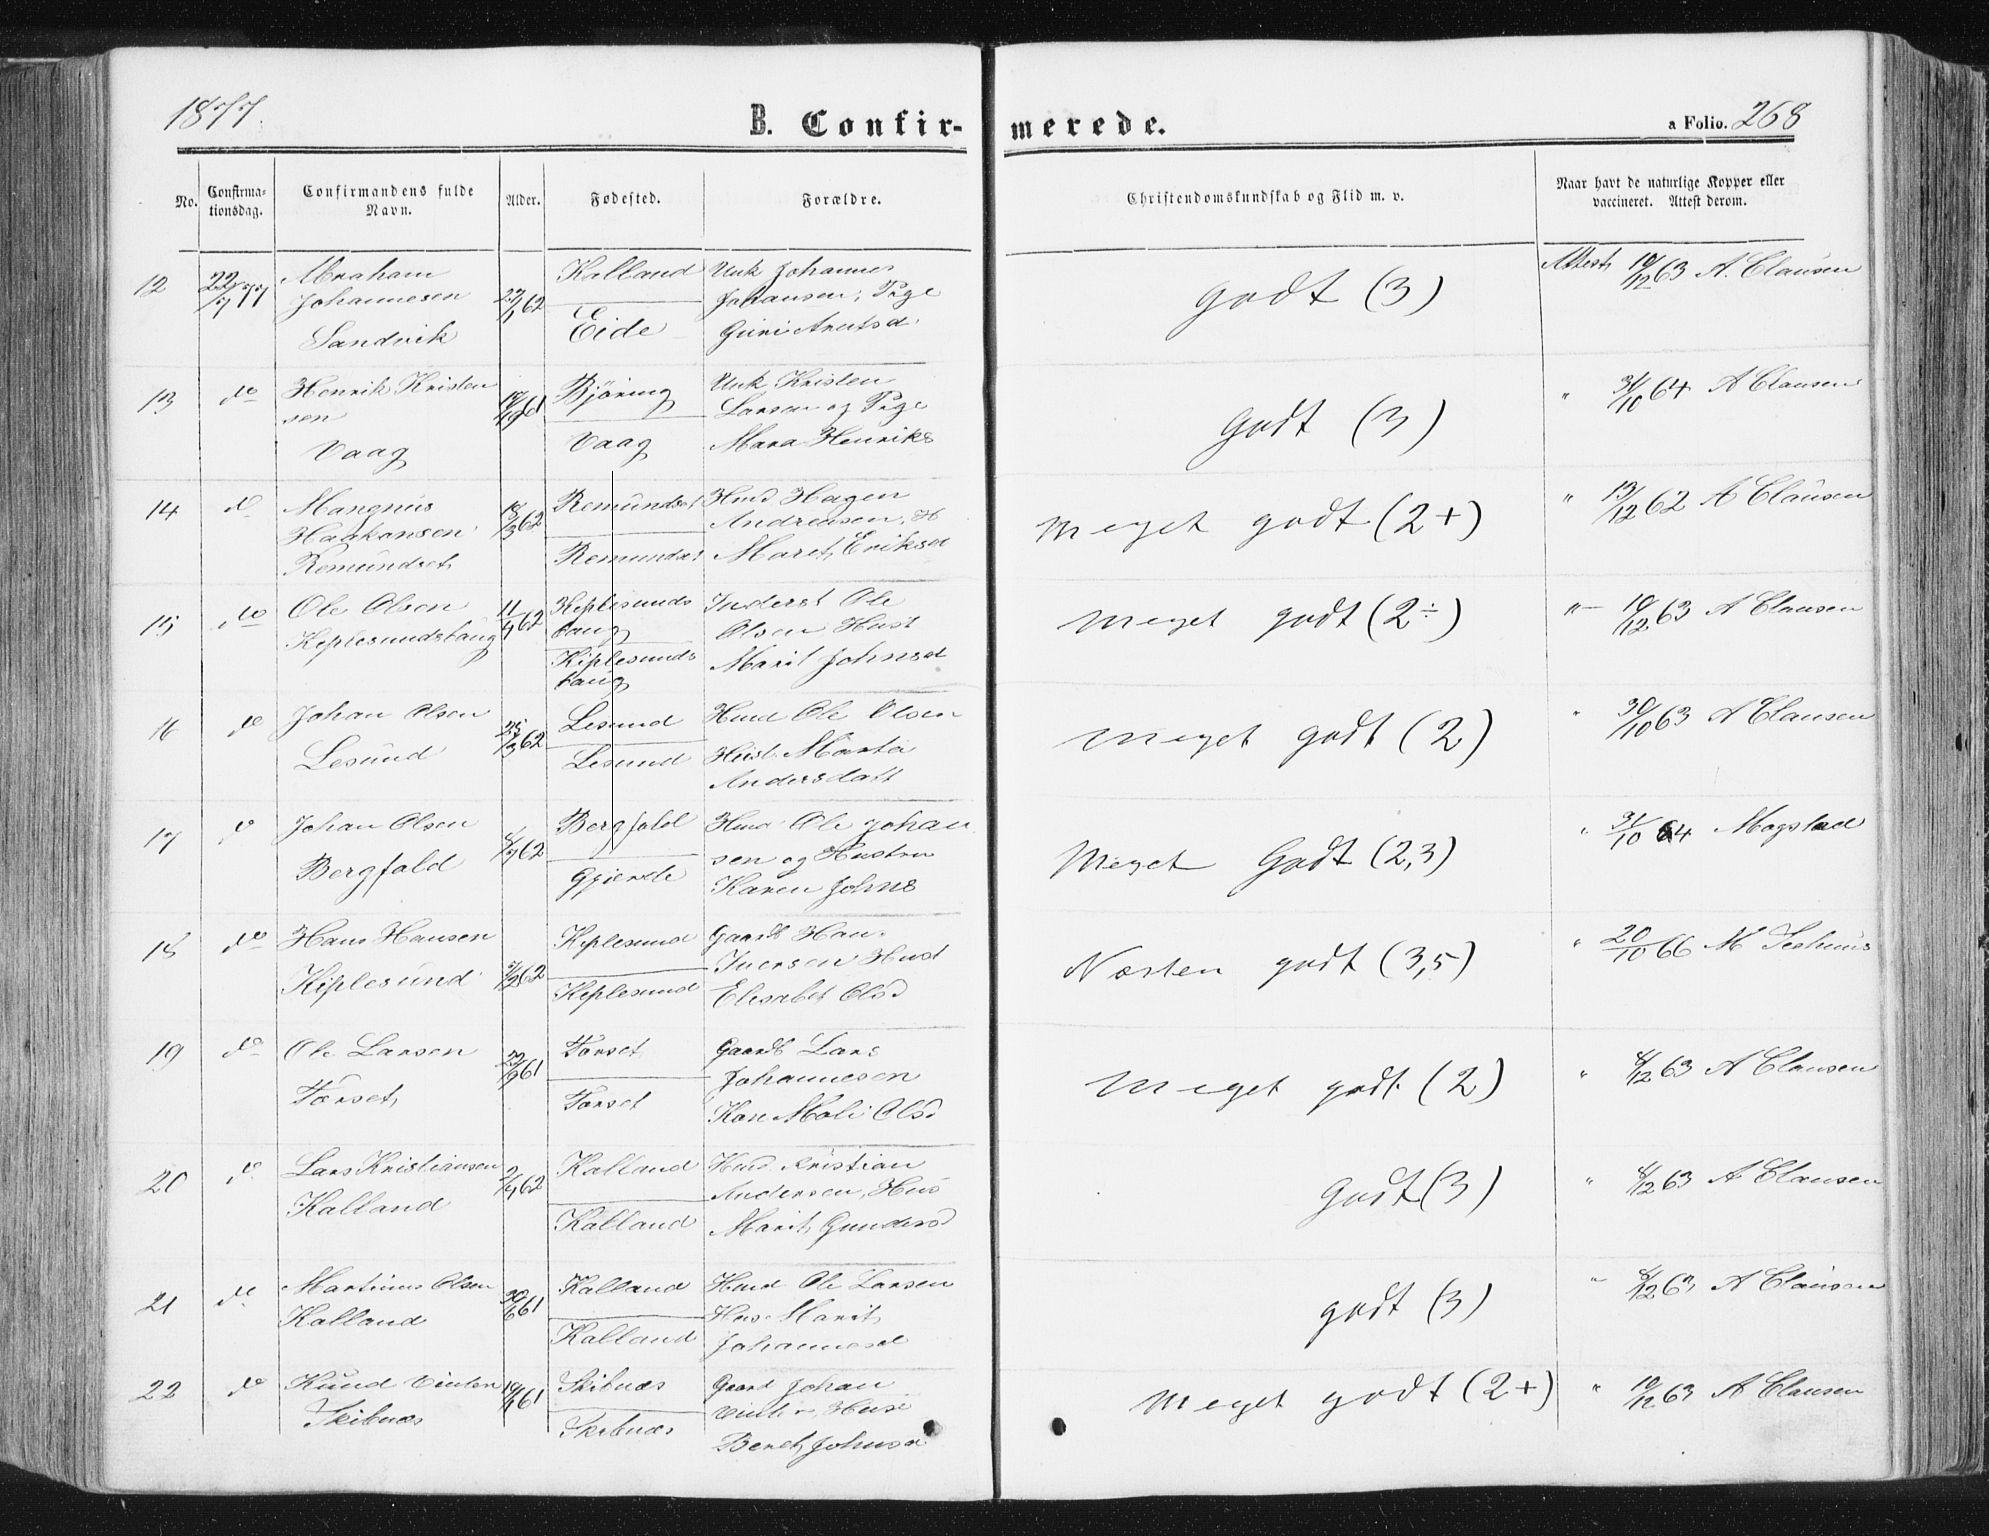 1877.
B. Confir-merede.
a Folio. 268
No.
Confirma-
tionsdag.
Confirmandens fulde
Navn.
Alder.
Fødested.
Forældre.
Christendomskundskab og Flid m. v.
Naar havt de naturlige Kopper eller
vaccineret. Attest derom.
12 22/7 77 Abraham Johannesen Sandvik 29/1 62 Kalland Eide Unk Johannes Johansen, Pige Guri Arntsd. godt (3) Attest 10/12 63 A. Clausen
13 do Henrik Kristensen Vaag 61 Björing Vaag Unk Kristen Larsen og Pige Mara Henriks Godt (3) " 31/10 64 A Clausen
14 do Mangnus Haakonsen Remundset 18/3 62 Remundset Remundset Hmd Hagen Andreasen, H Maret Eriksd Meget godt (2+) " 13/12 62 A Clausen
15 do Ole Olsen Keplesundstaug 11/4 62 Keplesundstaug Kiplesundstaug Inderst Ole Olsen Hust Marit Johnsd Meget godt (2÷) " 10/12 63 A Clausen
16 do Johan Olsen Lesund 25/3 62 Lesund Lesund Hmd Ole Olsen Hust. Marta Andersdatt Meget godt (2) " 30/10 63 A Clausen
17 do Johan Olsen Bergfald 62 Bergfald Gjierde Hmd Ole Johansen og Hustru Karen Johns Meget Godt (2,3) " 31/10 64 Mogstad
18 do Hans Hansen Kiplesund 62 Keplesund Keplesund Gaardb Hans Iversen Hust Elisabet Olsd Næsten godt (3,5) " 20/10 66 M Seehuus
19 do Ole Larsen Førset 29/9 61 Forset Forset Gaardb Lars Johannesen Kon Mali Olsd Meget godt (2) " 4/12 63 A Clausen
20 do Lars Kristiansen Kalland 2/4 62 Kalland Kalland Hmd Kristian Andersen, Hus Marit Gundersd Godt (3) " 4/12 63 A Clausen
21 do Martinus Olsen Kalland 30/6 61 Kalland Kalland Hmd Ole Larsen Hus. Marit Johannesd godt (3) " 8/12 63 A Clausen
22 do Knud Vinter Skibnæs 61 Skibnæs Skibnæs Gaard Johan Vinter, Hus Beret Johnsd Meget godt (2+) " 10/12 63 A Clausen